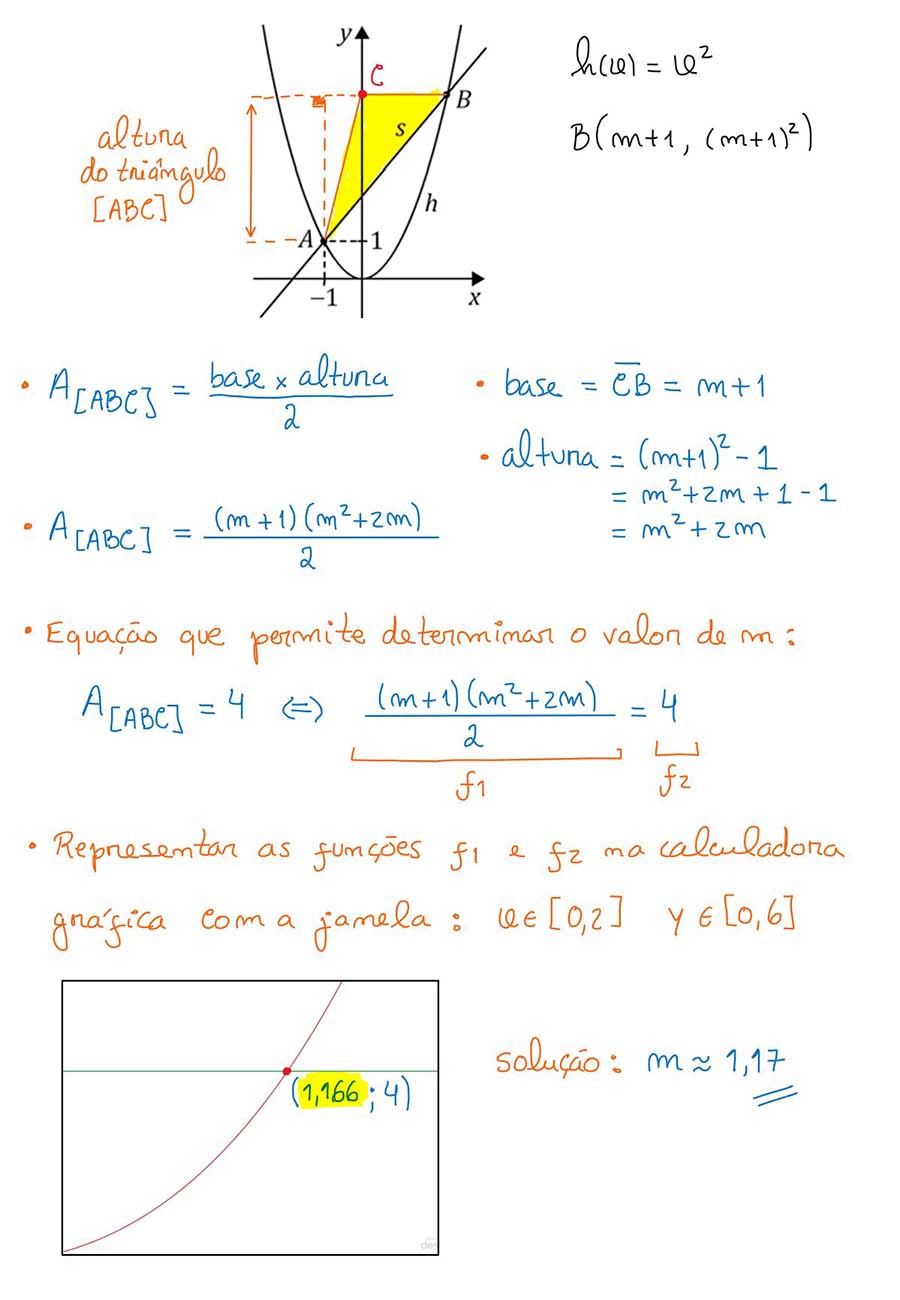 y
C
h(x) = x²
B
B(m+1, (m+1)²)
s
altura
do triângulo
[ABC]
h
A
1
−1
x
• A[ABC] = base × altura / 2
• base = C̅B̅ = m+1
• altura = (m+1)² - 1
= m²+2m+1-1
= m²+2m
• A[ABC] = (m+1)(m²+2m) / 2
• Equação que permite determinar o valor de m:
A[ABC] = 4 ⇔ (m+1)(m²+2m) / 2 = 4
f1
f2
• Representar as funções f1 e f2 na calculadora
gráfica com a janela: x∈[0,2] y∈[0,6]
(1,166; 4)
solução: m ≈ 1,17